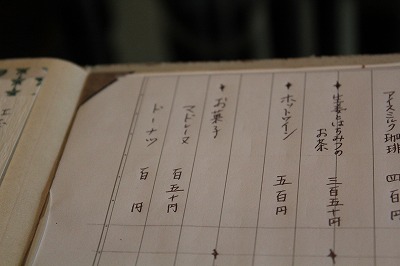 アイスミルク珈琲 四百
生姜とはちみつの
お茶 三百五十円
ホットワイン 五百円
お菓子
マドレーヌ 百五十円
ドーナツ 百円